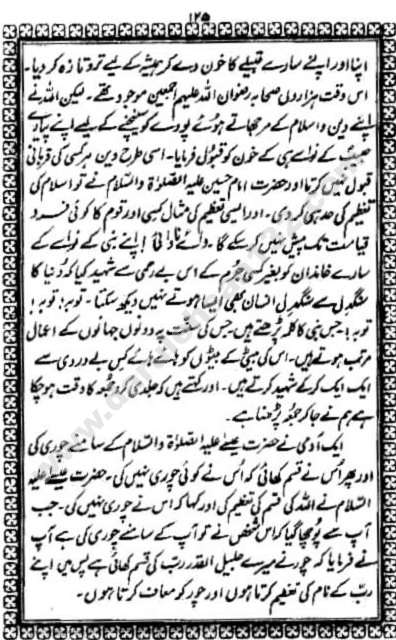 ۱۲۵
اپنا اور اپنے سارے قبیلے کا خون دے کر ہمیشہ کے لیے تر و تازہ کر دیا۔
اس وقت ہزاروں صحابہ رضوان اللہ علیہم اجمعین موجود تھے۔ لیکن اللہ نے
اپنے دین و اسلام کے مرجھاتے ہوئے پودے کو سینچنے کے لیے اپنے پیارے
حبیب کے نواسے ہی کے خون کو قبول فرمایا۔ اسی طرح دین ہر کسی کی قربانی
قبول نہیں کرتا اور حضرت امام حسین علیہ الصلوٰۃ والسلام نے تو اسلام کی
تعظیم کی حد ہی کر دی۔ اور ایسی تعظیم کی مثال کسی اور قوم کا کوئی فرد
قیامت تک پیش نہیں کر سکے گا۔ وائے نادانی! اپنے ہی نبی کے نواسے کے
سارے خاندان کو بغیر کسی جرم کے اس بے رحمی سے شہید کیا کہ دنیا کا
سنگدل سے سنگدل انسان بھی ایسا ہوتے نہیں دیکھ سکتا۔ توبہ! توبہ!
توبہ! جس نبی کا کلمہ پڑھتے ہیں جس کی سنت پہ دونوں جہانوں کے اعمال
مرتب ہوتے ہیں۔ اس کی بیٹی کے بیٹوں کو ہائے ہائے کس بے دردی سے
ایک ایک کر کے شہید کرتے ہیں۔ اور کہتے ہیں کہ جلدی کرو جمعہ کا وقت ہو چکا
ہے ہم نے جا کر جمعہ پڑھنا ہے۔
ایک آدمی نے حضرت عیسےٰ علیہ الصلوٰۃ والسلام کے سامنے چوری کی
اور پھر اُس نے قسم کھائی کہ اُس نے کوئی چوری نہیں کی۔ حضرت عیسےٰ علیہ
السلام نے اللہ کی قسم کی تعظیم کی اور کہا کہ اس نے چوری نہیں کی۔ جب
آپ سے پوچھا گیا کہ اس شخص نے تو آپ کے سامنے چوری کی ہے آپ
نے فرمایا کہ چور نے میرے جلیل القدر ربّ کی قسم کھائی ہے پس میں اپنے
ربّ کے نام کی تعظیم کرتا ہوں اور چور کو معاف کرتا ہوں۔